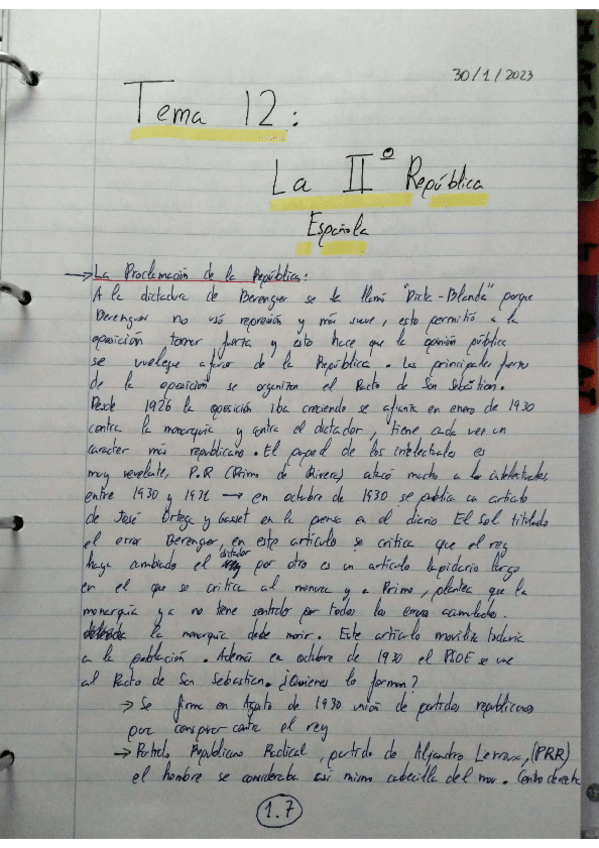 30/1/2023
Tema 12:
La IIº República
Española
→ La Proclamación de la República:
A la dictadura de Berenguer se la llamó "Dicta-Blanda" porque
Berenguer no usó represión y más suave, esto permitió a la
oposición tomar fuerza y esto hace que la opinión pública
se vuelque a favor de la República. Las principales fuerzas
de la oposición se organizan el Pacto de San Sebastian.
Desde 1926 la oposición iba creciendo se afianza en enero de 1930
contra la monarquía y contra el dictador, tiene cada vez un
caracter más republicano. El papel de los intelectuales es
muy revelante, P.R (Primo de Rivera) atacó mucho a los intelectuales,
entre 1930 y 1931 → en octubre de 1930 se publica un articulo
de José Ortega y Gasset en la prensa en el diario El Sol titulado
el error Berenguer, en este artículo se critica que el rey
haya cambiado el dictador por otro es un articulo lapidario largo
en el que se critica al monarca y a Primo, plantea que la
monarquía ya no tiene sentido por todos los errores acumulados.
la monarquía debe morir. Este artículo moviliza todavía
a la población. Además en octubre de 1930 el PSOE se une
al Pacto de San Sebastian. ¿Quienes lo forman?
→ Se firma en Agosto de 1930 unión de partidos republicanos
por conspirar contra el rey
→ Partido Republicano Radical, partido de Alejandro Lerroux, (PRR)
el hombre se consideraba asi mismo cabecilla del mov. Centro derecha
1.7